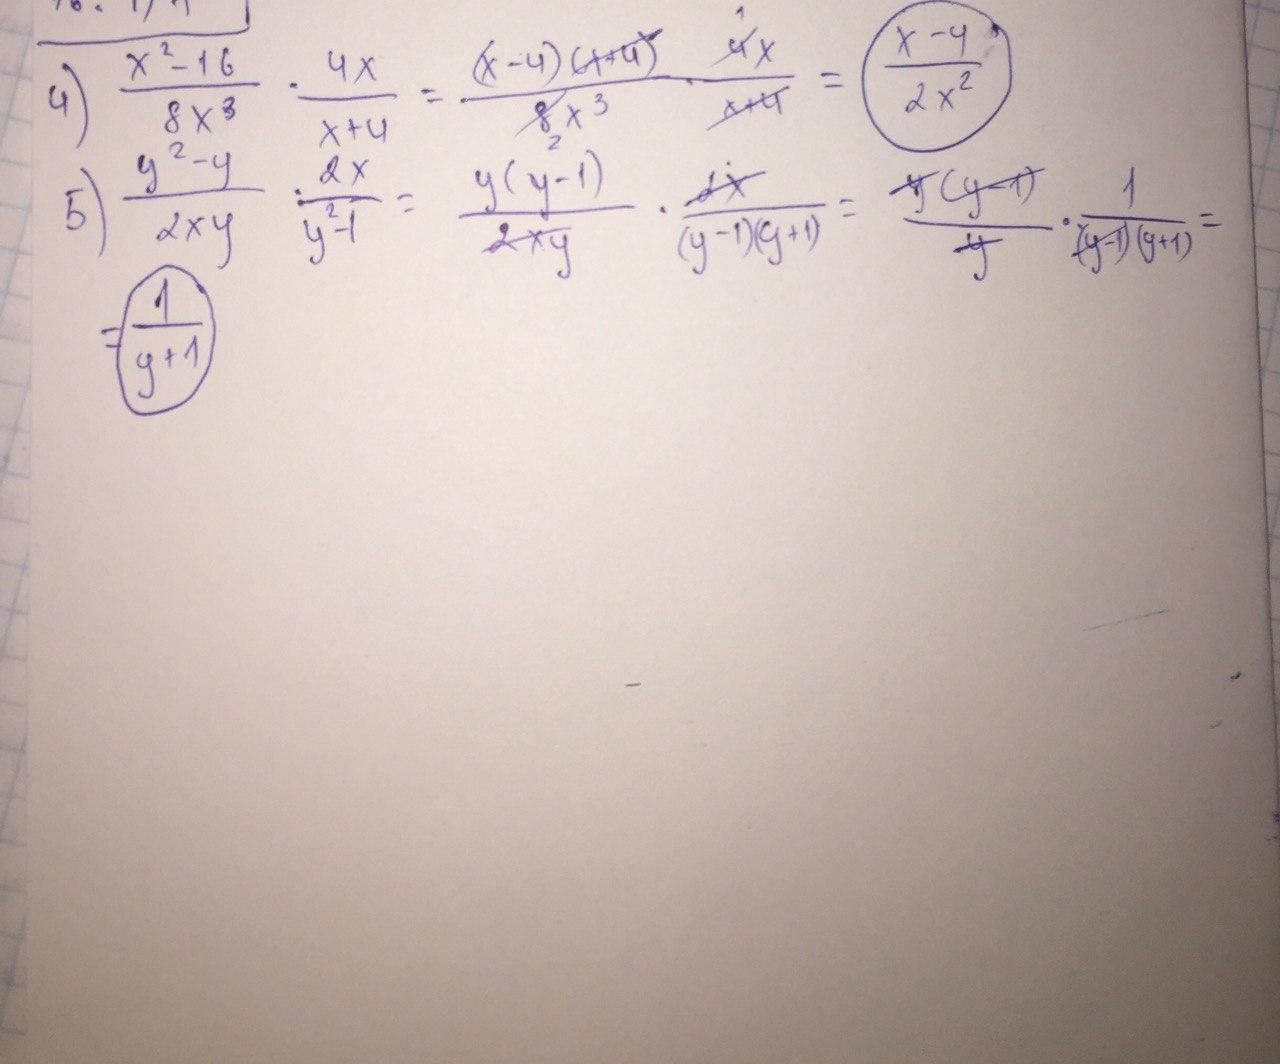 4) (x²-16)/(8x³) · (4x)/(x+4) = ((x-4)(x+4))/(8x³) · (4x)/(x+4) = (x-4)/(2x²)
5) (y²-y)/(2xy) · (2x)/(y²-1) = (y(y-1))/(2xy) · (2x)/((y-1)(y+1)) = (y(y-1))/(y) · (1)/((y-1)(y+1)) =
= (1)/(y+1)